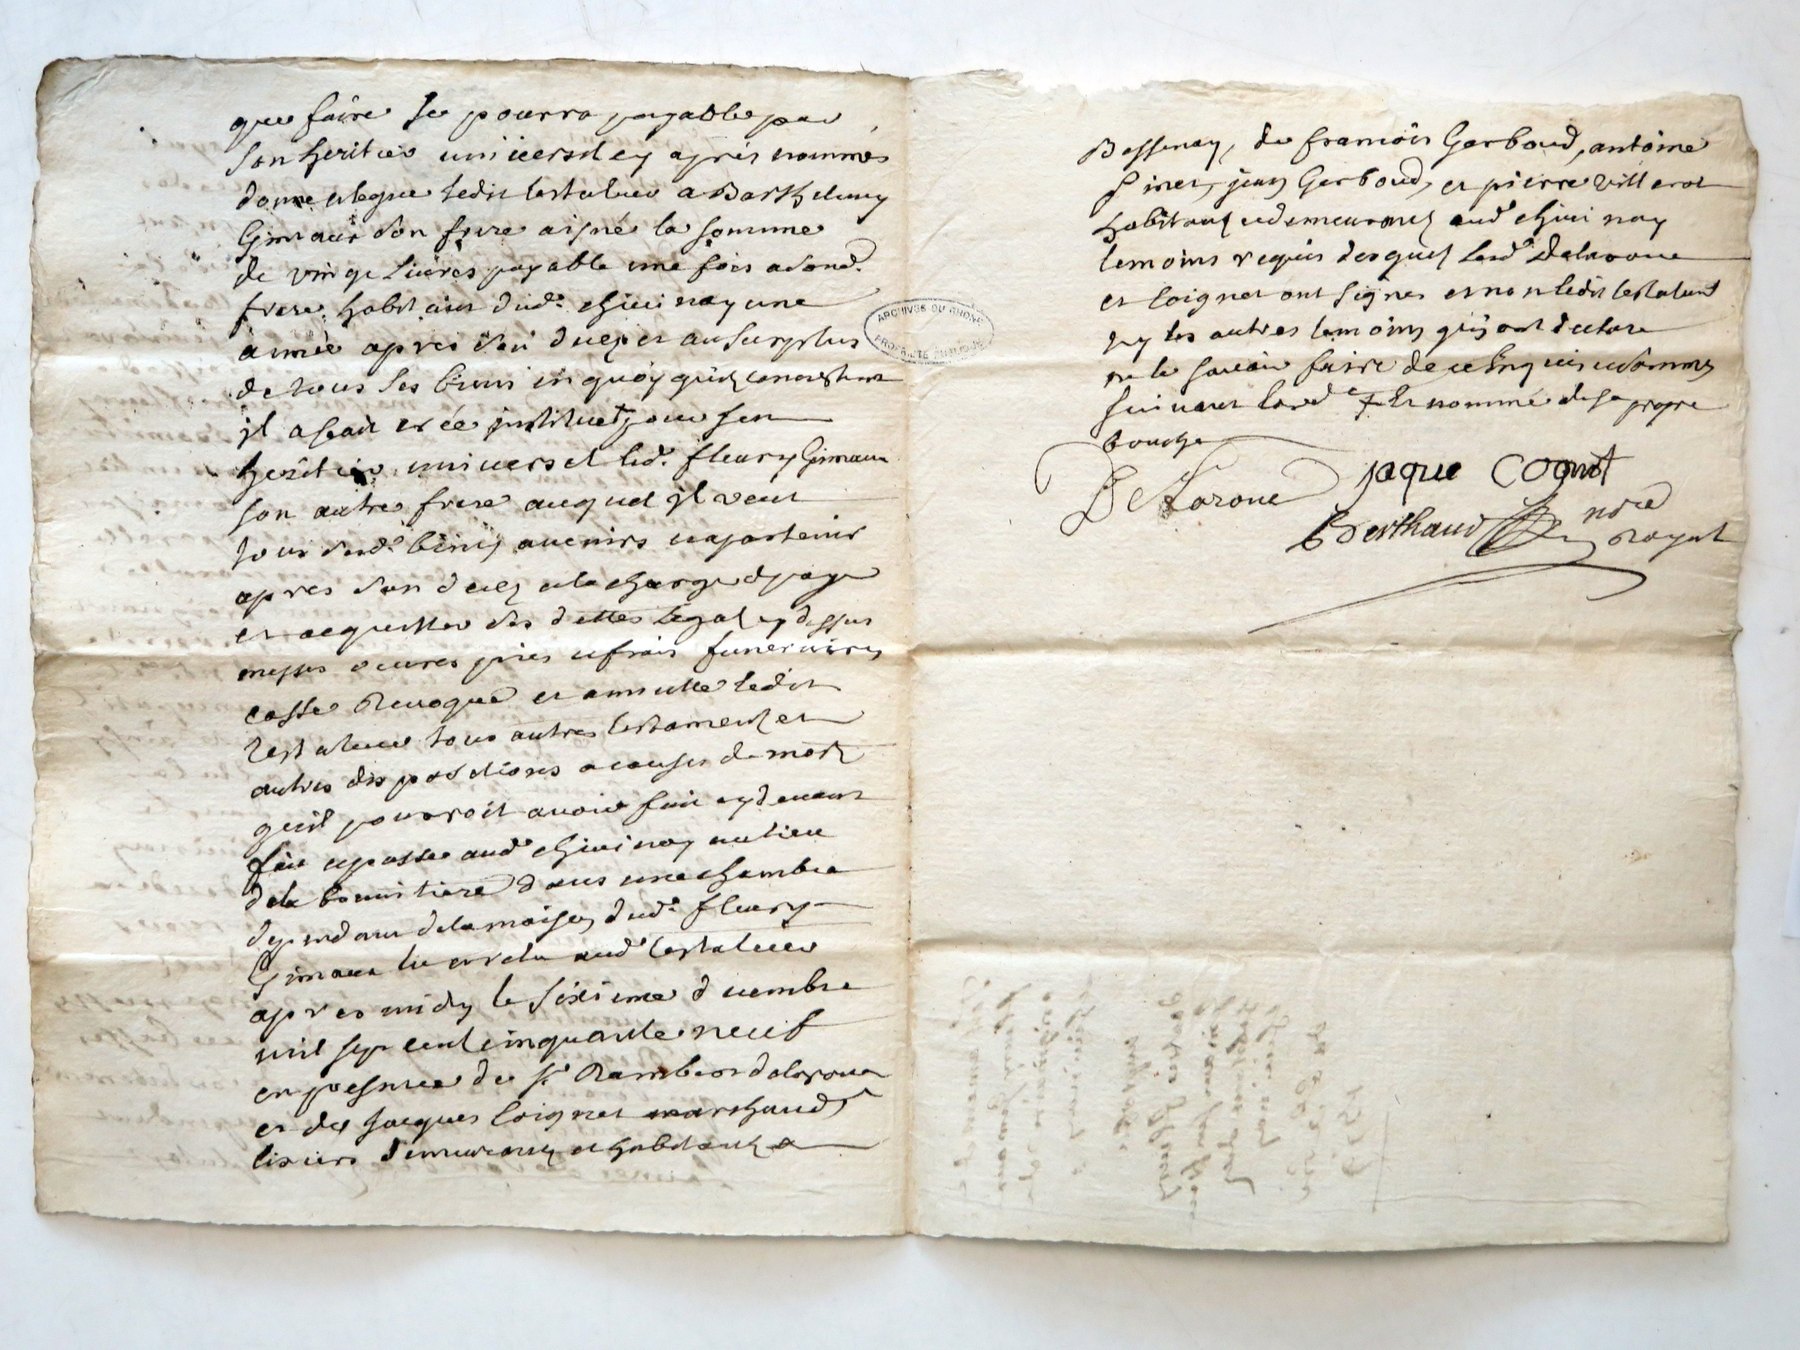 que faire se pourra payable par
son heritier universel cy après nommé
donne et legue ledit testateur a Barthelemy
Gimaux son frere aisné la somme
de vingt Livres payable une fois a sond.
frere habitant dud. chivinay une
année apres son decez et au surplus
de tous ses biens en quoy quilz consistent
il a fait créé institue pour son
heritier universel led. fleury Gimaux
son autre frere auquel il veut
tous sesd. biens avenirs et apartenir
apres son decez a la charge de payer
et acquitter ses dettes legat cy dessus
messes oeuvres pies et frais funeraires
casse revoque et annulle ledit
testateur tous autres testament et
autres dispositions a causes de mort
quil pourroit avoir fait cy devant
fait et passé aud. chivinay au lieu
de la dans une chambre
dependant de la maison dud. fleury
Gimaux lu et relu aud. testateur
apres midy le sixieme decembre
mil sept cent cinquante neuf
en presence de sr. Rambert delaroue
et de Jacques Coignet marchands
demeurant et habitant a
Bessenay, de francois Gerboud, antoine
Pinet, jean Gerboud, et pierre Villerot
habitants et demeurants aud. chivinay
temoins requis desquels lesd. Delaroue
et Coignet ont signes et non ledit testateur
ny les autres temoins qui ont declare
ne le scavoir faire de ce enquis et sommés
suivant lord.ce + Et nommé de sa propre
bouche
DeLaroue jaque Cognot
Berthaud nore
Royal
ARCHIVES DU RHONE
PROPRIETE PUBLIQUE